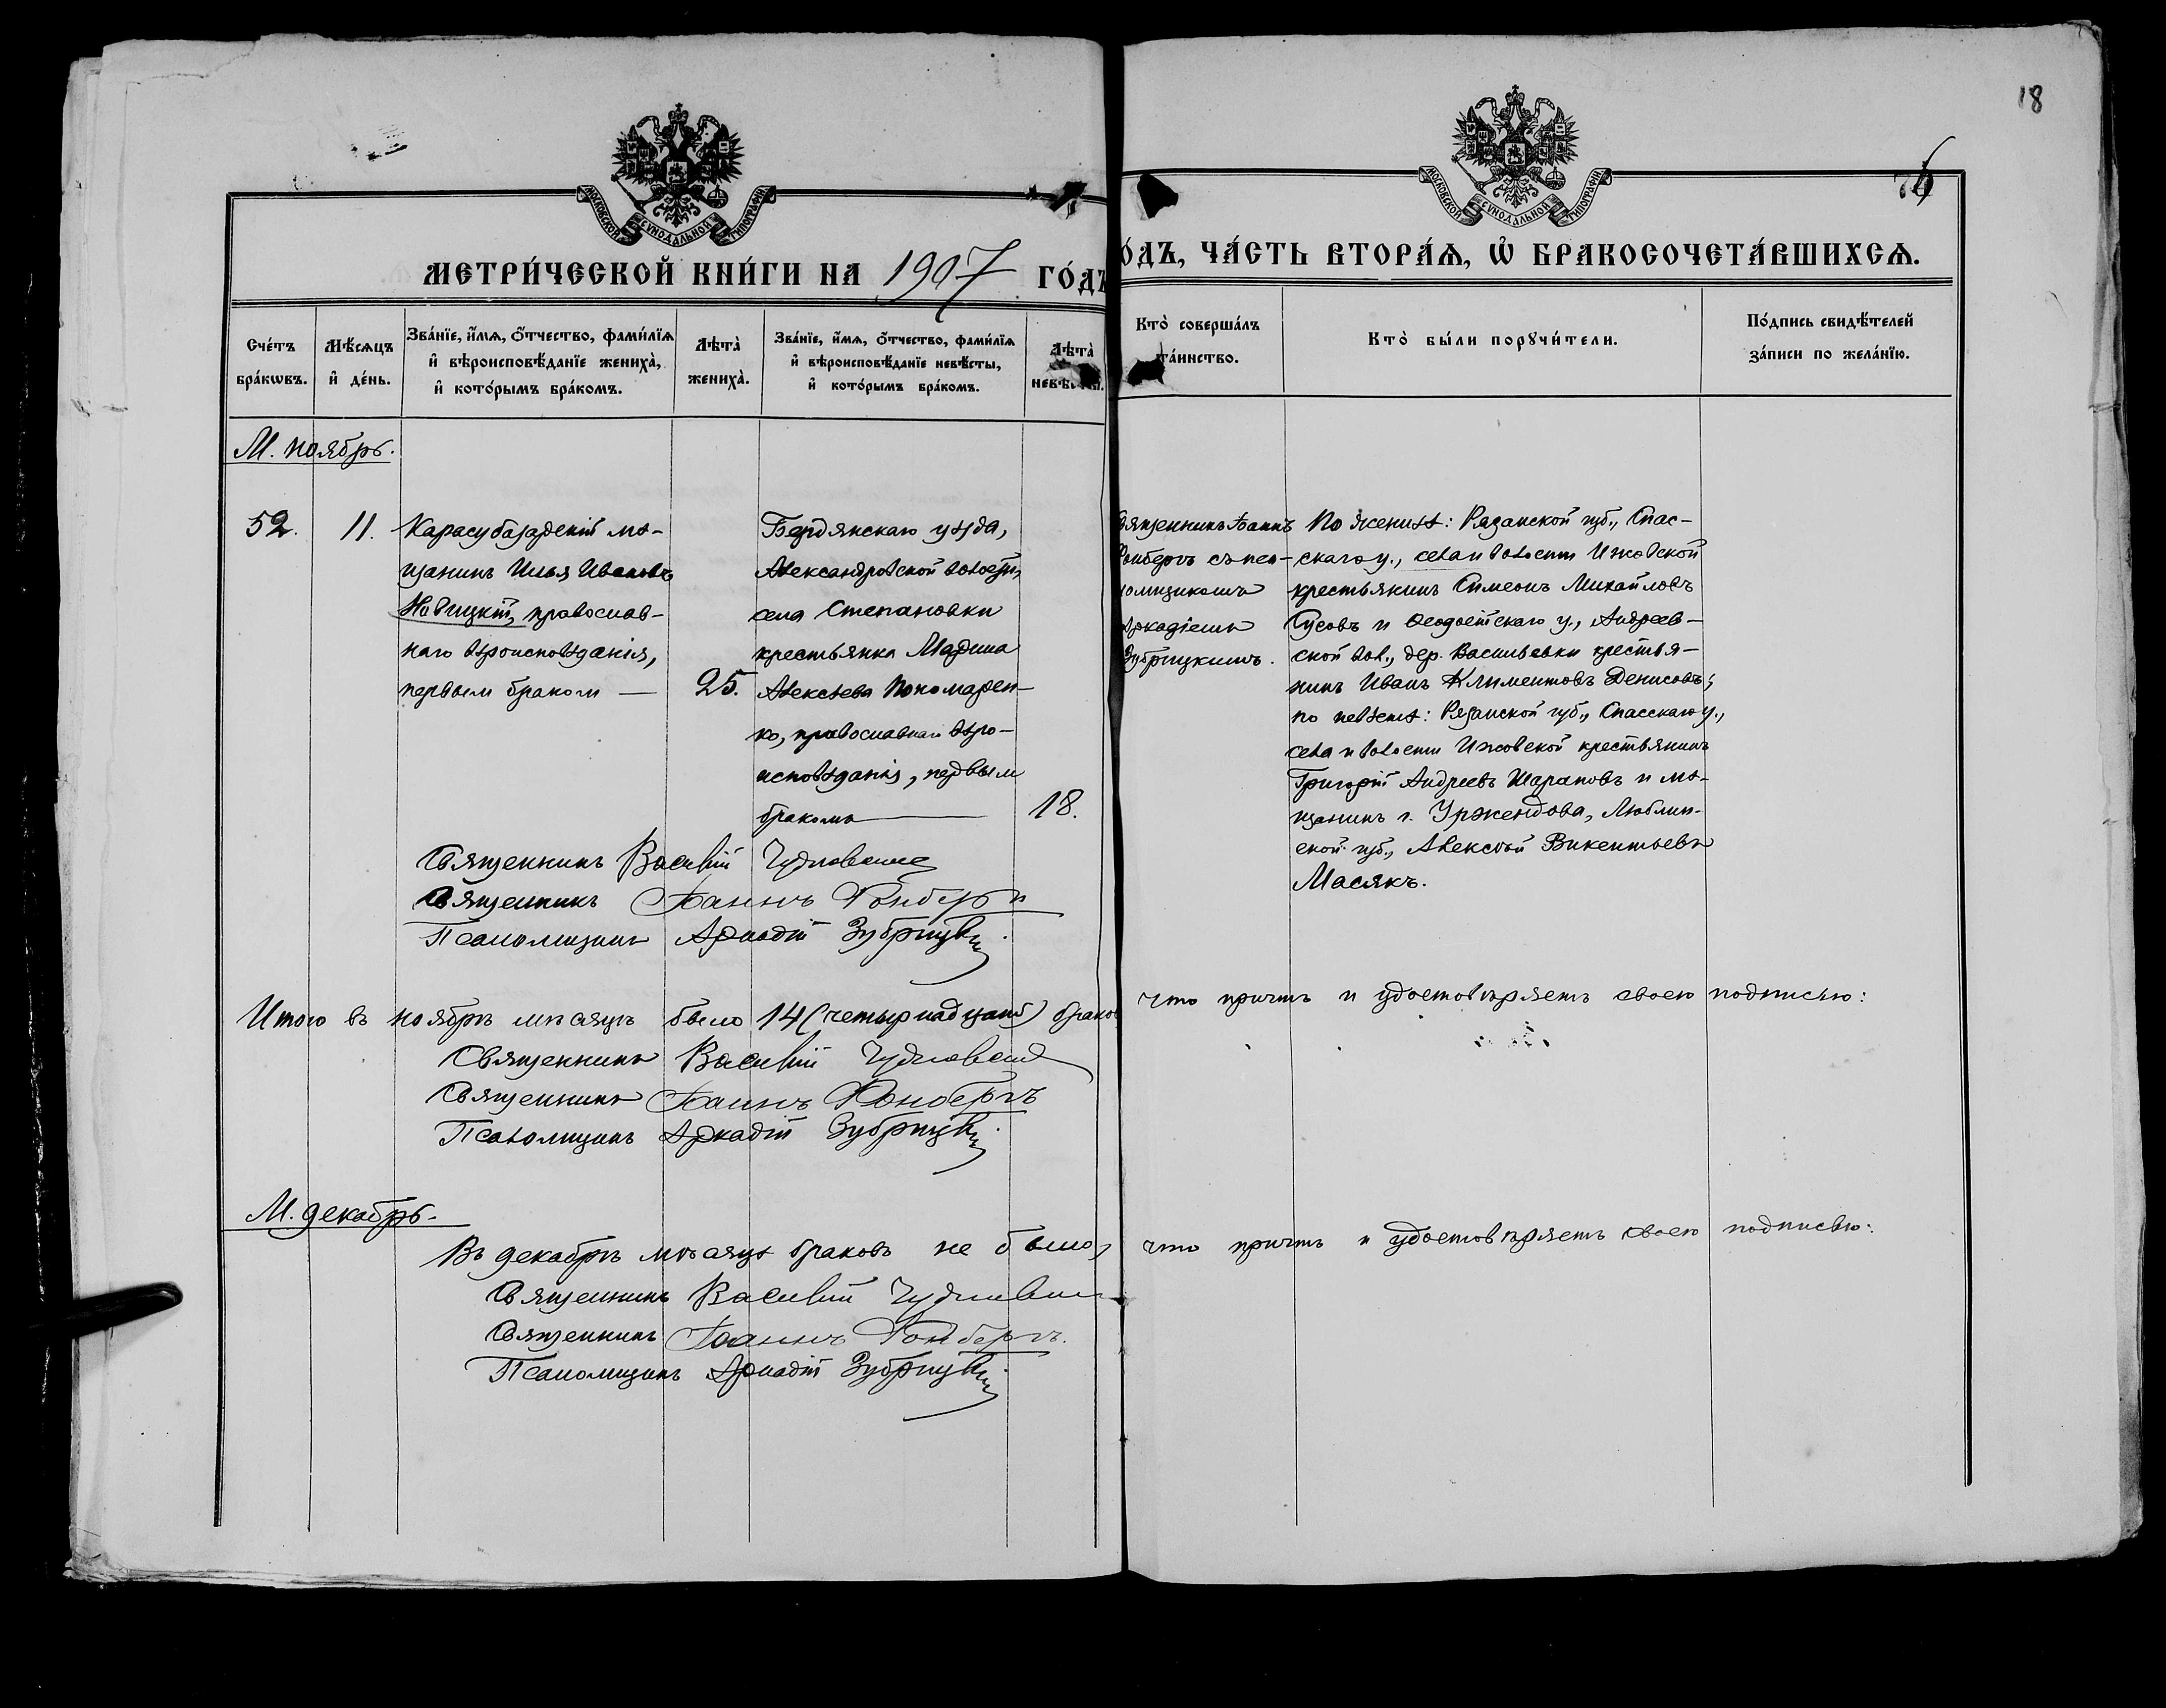 18
76
МОСКОВСКОЙ СѴНОДАЛЬНОЙ ТИПОГРАФІИ
МОСКОВСКОЙ СѴНОДАЛЬНОЙ ТИПОГРАФІИ
МЕТРИ́ЧЕСКОЙ КНИ́ГИ НА 1907 ГО́ДЪ
О́ДЪ, ЧА́СТЬ ВТОРА́Ѧ, Ѡ҆ БРАКОСОЧЕТА́ВШИХСѦ.
Сче́тъ бра́кѡвъ.
Мѣ́сѧцъ и҆ де́нь.
Зва́нїе, и҆́мѧ, ѻ҆́тчество, фами́лїѧ и҆ вѣроисповѣ́данїе жениха̀, и҆ кото́рымъ бра́комъ.
Лѣта̀ жениха̀.
Зва́нїе, и҆́мѧ, ѻ҆́тчество, фами́лїѧ и҆ вѣроисповѣ́данїе невѣ́сты, и҆ кото́рымъ бра́комъ.
Лѣта̀ невѣ́сты.
Кто̀ соверша́лъ та́инство.
Кто̀ бы́ли порꙋчи́тели.
По́дпись свидѣ́телей за́писи по жела́нїю.
М. ноябрь.
52.
11.
Карасубазарскій мѣ-
щанинъ Илья Ивановъ
Новицкій, православ-
наго вѣроисповѣданія,
первым браком —
25.
Бердянскаго уѣзда,
Александровской волости,
села Степановки
крестьянка Марина
Алексѣева Пономарен-
ко, православнаго вѣро-
исповѣданія, первым
бракомъ
18.
Священникъ Іоаннъ
Гонбергъ съ псал-
омщикомъ
Аркадіемъ
Зубрицкимъ.
По женихѣ: Рязанской губ., Спас-
скаго у., села и волости Ижевской
крестьянинъ Симеонъ Михайловъ
Гусовъ и Ѳеодосійскаго у., Андреев-
ской вол., дер. Васильевки крестья-
нинъ Иванъ Климентовъ Денисовъ;
по невѣстѣ: Рязанской губ., Спасскаго у.,
села и волости Ижовской крестьянинъ
Григорій Андреевъ Шараповъ и мѣ-
щанинъ г. Уржендова, Люблин-
ской губ., Алексѣй Викентьевъ
Масякъ.
Священникъ Василій Чудновскій
Священникъ Іоаннъ Гонбергъ
Псаломщикъ Аркадій Зубрицкій.
Итого въ ноябрѣ мѣсяцѣ было 14 (четырнадцать) браков
что причтъ и удостовѣряетъ своею подписью:
Священникъ Василій Чудновскій
Священникъ Іоаннъ Гонбергъ
Псаломщикъ Аркадій Зубрицкій.
М. декабрь.
Въ декабрѣ мѣсяцѣ браковъ не было,
что причтъ и удостовѣряетъ своею подписью:
Священникъ Василій Чудновскій
Священникъ Іоаннъ Гонбергъ.
Псаломщикъ Аркадій Зубрицкій.